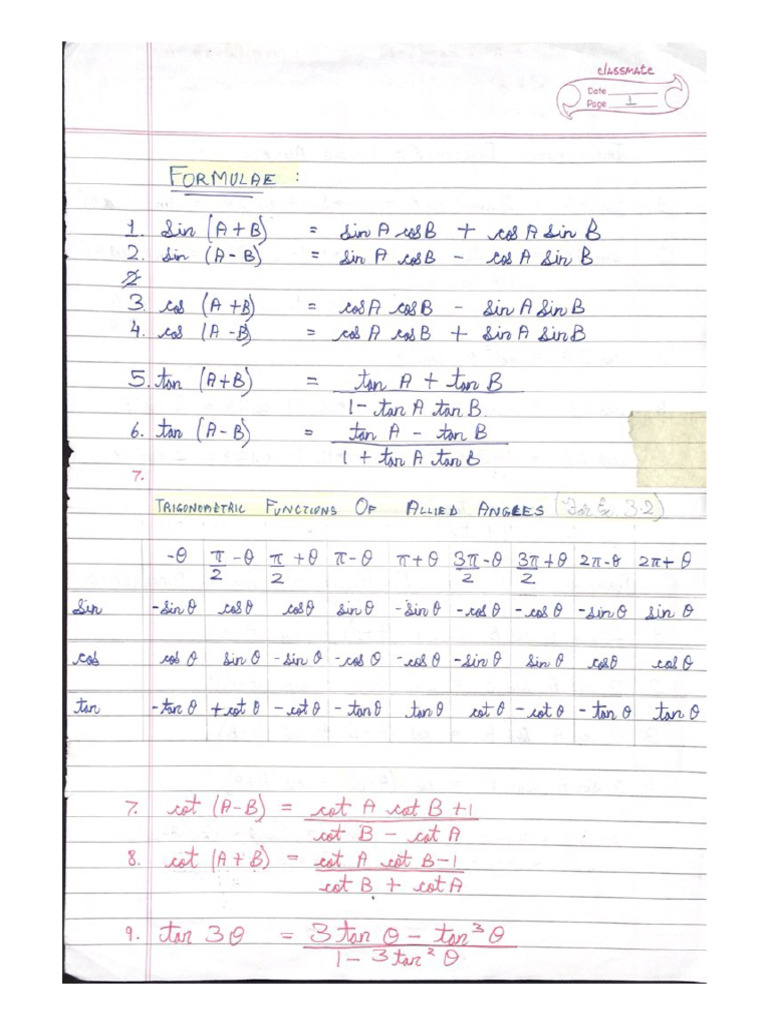 classmate
Date
Page 1
FORMULAE :
1. sin (A+B) = sin A cos B + cos A sin B
2. sin (A-B) = sin A cos B - cos A sin B
3. cos (A+B) = cos A cos B - sin A sin B
4. cos (A-B) = cos A cos B + sin A sin B
5. tan (A+B) = tan A + tan B
1 - tan A tan B
6. tan (A-B) = tan A - tan B
1 + tan A tan B
7.
TRIGONOMETRIC FUNCTIONS OF ALLIED ANGLES (For Ex. 3.2)
-θ π/2 - θ π/2 + θ π-θ π+θ 3π/2 - θ 3π/2 + θ 2π-θ 2π+θ
sin -sin θ cos θ cos θ sin θ -sin θ -cos θ -cos θ -sin θ sin θ
cos cos θ sin θ -sin θ -cos θ -cos θ -sin θ sin θ cos θ cos θ
tan -tan θ +cot θ -cot θ -tan θ tan θ cot θ -cot θ -tan θ tan θ
7. cot (A-B) = cot A cot B +1
cot B - cot A
8. cot (A+B) = cot A cot B-1
cot B + cot A
9. tan 3θ = 3 tan θ - tan³ θ
1 - 3 tan² θ